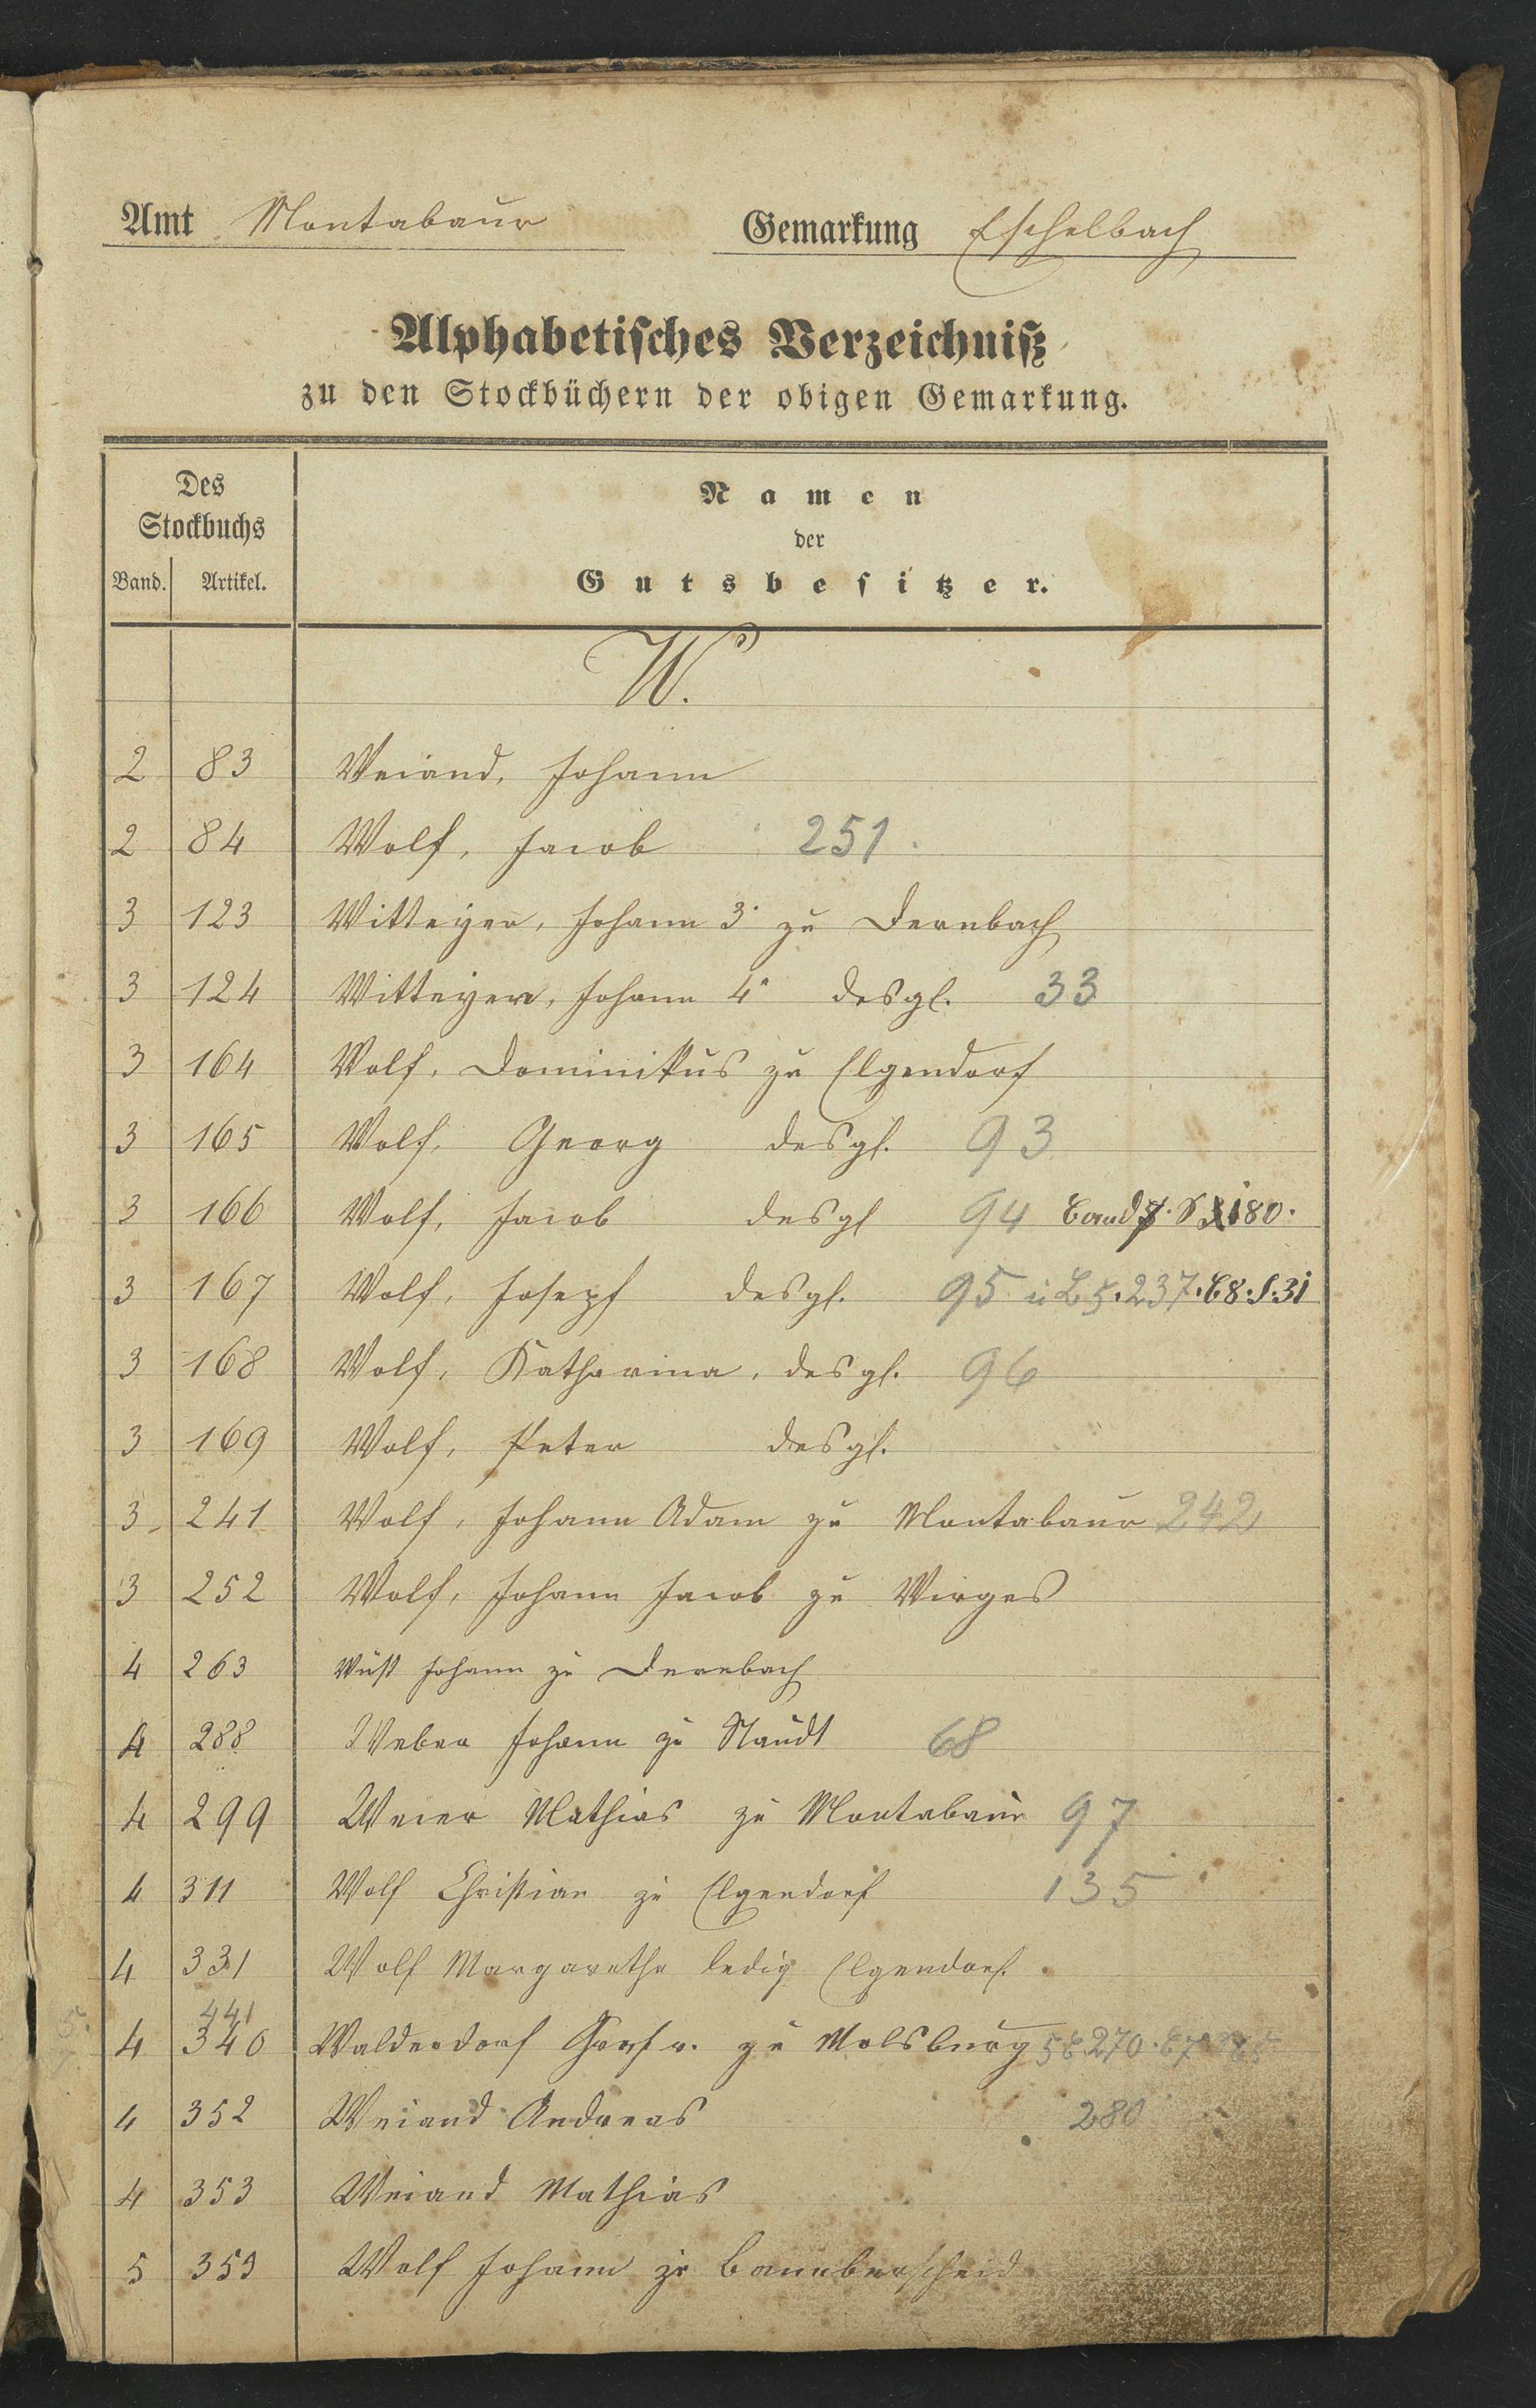 Amt Montabaur Gemarkung Eschelbach
Alphabetisches Verzeichniß
zu den Stockbüchern der obigen Gemarkung.
Des Stockbuchs
Band. Artikel.
Namen
der
Gutsbesitzer.
W.
2 83 Weiand, Johann
2 84 Wolf, Jacob 251.
3 123 Witteyer, Johann 3. zu Dernbach
3 124 Witteyer, Johann 4. desgl. 33
3 164 Wolf, Dominikus zu Elgendorf
3 165 Wolf, Georg desgl. 93
3 166 Wolf, Jacob desgl 94 Band 180.
3 167 Wolf, Joseph desgl. 95 u B 5. 237. B8. S. 31
3 168 Wolf, Katharina, desgl. 96
3 169 Wolf, Peter desgl.
3 241 Wolf, Johann Adam zu Montabaur 242
3 252 Wolf, Johann Jacob zu Wirges
4 263 Wüst Johann zu Dernbach
4 288 Weber Johann zu Staudt 68
4 299 Weier Mathias zu Montabaur 97
4 311 Wolf Christian zu Elgendorf 135
4 331 Wolf Margarethe ledig Elgendorf.
441
5. 4 340 Walderdorf Graf v. zu Molsburg 270.
4 352 Weiand Andreas 280
4 353 Weiand Mathias
5 359 Wolf Johann zu Bannberscheid